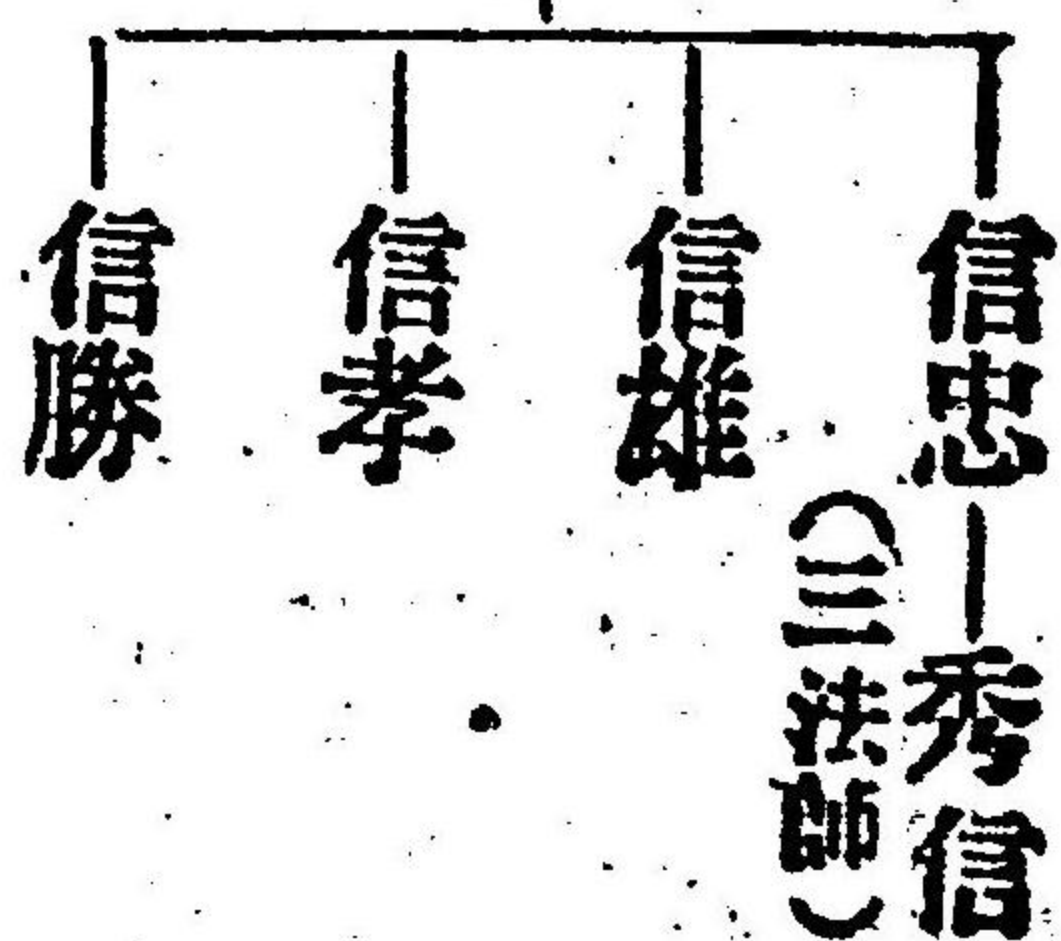 信忠
秀信
(三法師)
信雄
信孝
信勝